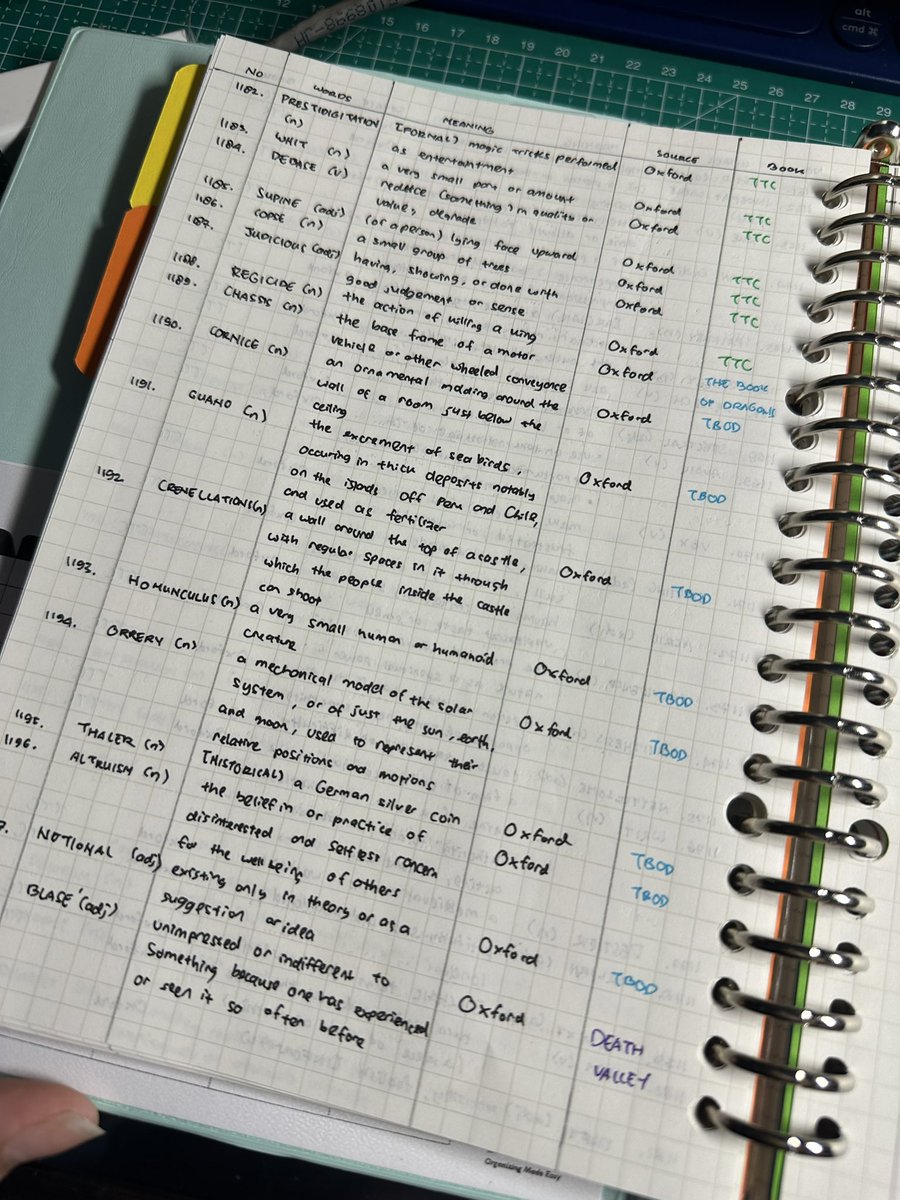 HC-8668015
15 16 17 18 19 20 21 22 23 24 25 26 27 28 29
alt
cmd ⌘
NO WORDS MEANING SOURCE BOOK
1182. PRESTIDIGITATION (n) [FORMAL] magic tricks performed Oxford TTC
as entertainment
1183. WHIT (n) a very small part or amount Oxford TTC
1184. DEBASE (v) reduce (something) in quality or Oxford TTC
value; degrade
1185. SUPINE (adj) (of a person) lying face upward Oxford TTC
1186. COPSE (n) a small group of trees Oxford TTC
1187. JUDICIOUS (adj) having, showing, or done with Oxford TTC
good judgement or sense
1188. REGICIDE (n) the action of killing a king Oxford TTC
1189. CHASSIS (n) the base frame of a motor Oxford THE BOOK
vehicle or other wheeled conveyance OF DRAGONS
1190. CORNICE (n) an ornamental molding around the Oxford TBOD
wall of a room just below the
ceiling
1191. GUANO (n) the excrement of sea birds, Oxford TBOD
occuring in thick deposits notably
on the islands off Peru and Chile,
and used as fertilizer
1192 CRENELLATION (n) a wall around the top of a castle, Oxford TBOD
with regular spaces in it through
which the people inside the castle
can shoot
1193. HOMUNCULUS (n) a very small human or humanoid Oxford TBOD
creature
1194. ORRERY (n) a mechanical model of the solar Oxford TBOD
system, or of just the sun, earth,
and moon, used to represent their
relative positions and motions
1195. THALER (n) [HISTORICAL] a German silver coin Oxford TBOD
1196. ALTRUISM (n) the belief in or practice of Oxford TBOD
disinterested and selfless concern
for the well being of others
7. NOTIONAL (adj) existing only in theory or as a Oxford TBOD
suggestion or idea
BLASÉ (adj) unimpressed or indifferent to Oxford DEATH
something because one has experienced VALLEY
or seen it so often before
Organising Made Easy